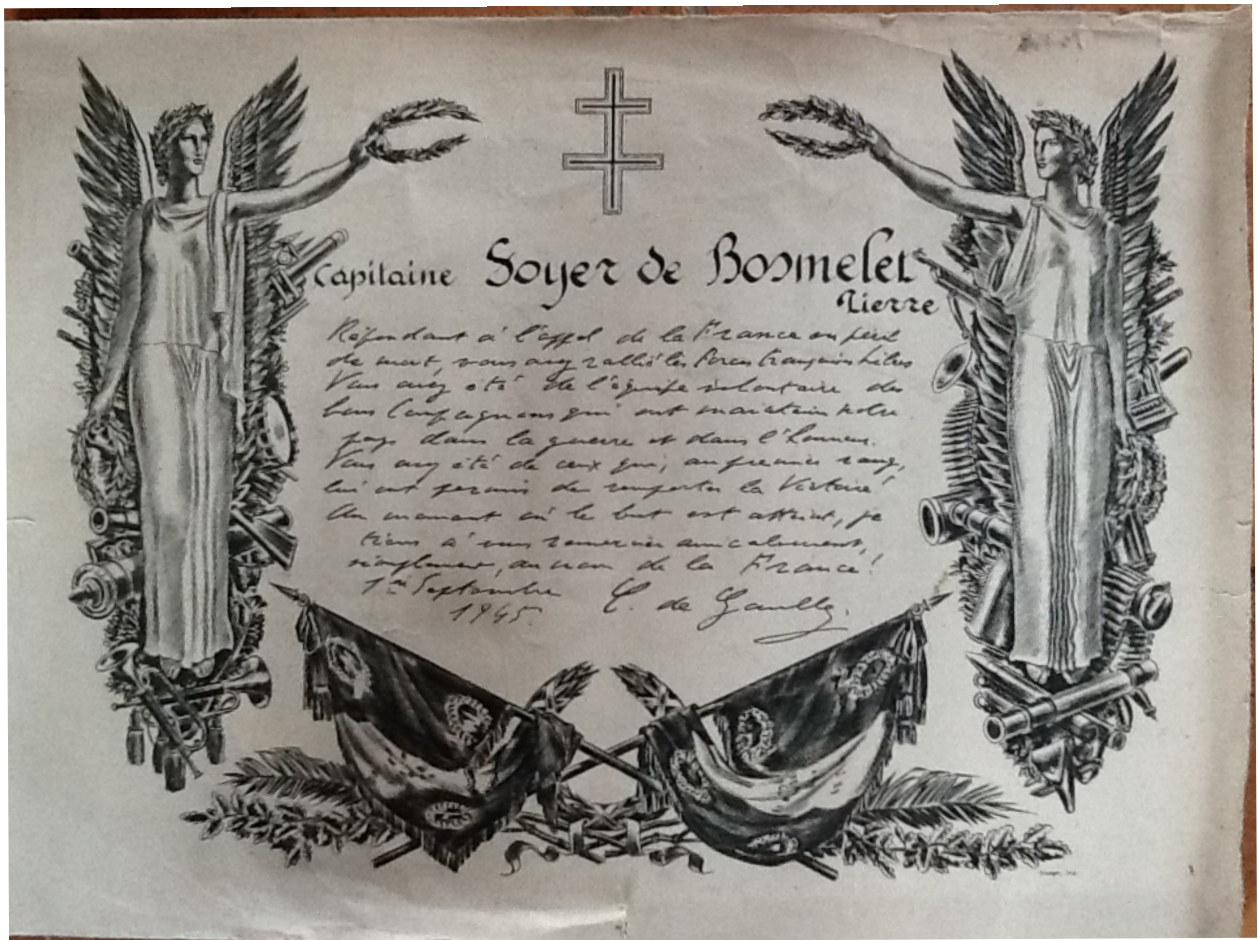 Capitaine Soyer de Bosmelet
Pierre
Répondant à l'appel de la France en péril
de mort, vous avez rallié les Forces françaises libres
Vous avez été de l'équipe volontaire des
bons compagnons qui ont maintenu notre
pays dans la guerre et dans l'honneur.
Vous avez été de ceux qui, au premier rang,
lui ont permis de remporter la Victoire!
Au moment où le but est atteint, je
tiens à vous remercier amicalement,
simplement, au nom de la France!
1er Septembre
1945. C. de Gaulle.